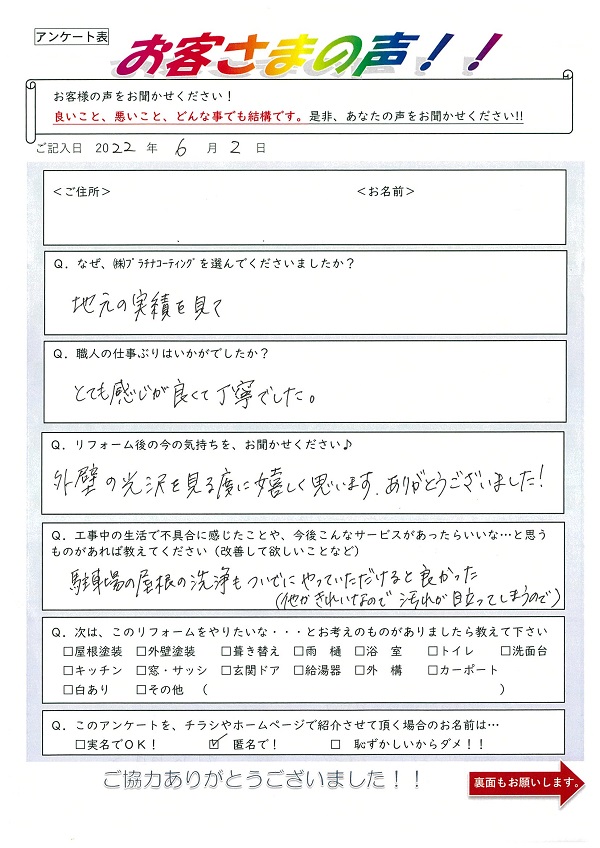 アンケート表
お客さまの声！！
お客様の声をお聞かせください！
良いこと、悪いこと、どんな事でも結構です。是非、あなたの声をお聞かせください!!
ご記入日 2022 年 6 月 2 日
＜ご住所＞ ＜お名前＞
Q．なぜ、㈱ﾌﾟﾗﾁﾅｺｰﾃｨﾝｸﾞを選んでくださいましたか？
地元の実績を見て
Q．職人の仕事ぶりはいかがでしたか？
とても感じが良くて丁寧でした。
Q．リフォーム後の今の気持ちを、お聞かせください♪
外壁の光沢を見る度に嬉しく思います．ありがとうございました！
Q．工事中の生活で不具合に感じたことや、今後こんなサービスがあったらいいな…と思う
ものがあれば教えてください（改善して欲しいことなど）
駐車場の屋根の洗浄もついでにやっていただけると良かった
（他がきれいなので汚れが目立ってしまうので）
Q．次は、このリフォームをやりたいな・・・とお考えのものがありましたら教えて下さい
□屋根塗装 □外壁塗装 □葺き替え □雨 樋 □浴 室 □トイレ □洗面台
□キッチン □窓・サッシ □玄関ドア □給湯器 □外 構 □カーポート
□白あり □その他 （ ）
Q．このアンケートを、チラシやホームページで紹介させて頂く場合のお名前は…
□実名でOK！ ☑ 匿名で！ □ 恥ずかしいからダメ！！
ご協力ありがとうございました！！
裏面もお願いします。